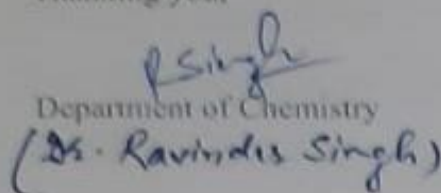 RSingh
Department of Chemistry
(Dr. Ravinder Singh)